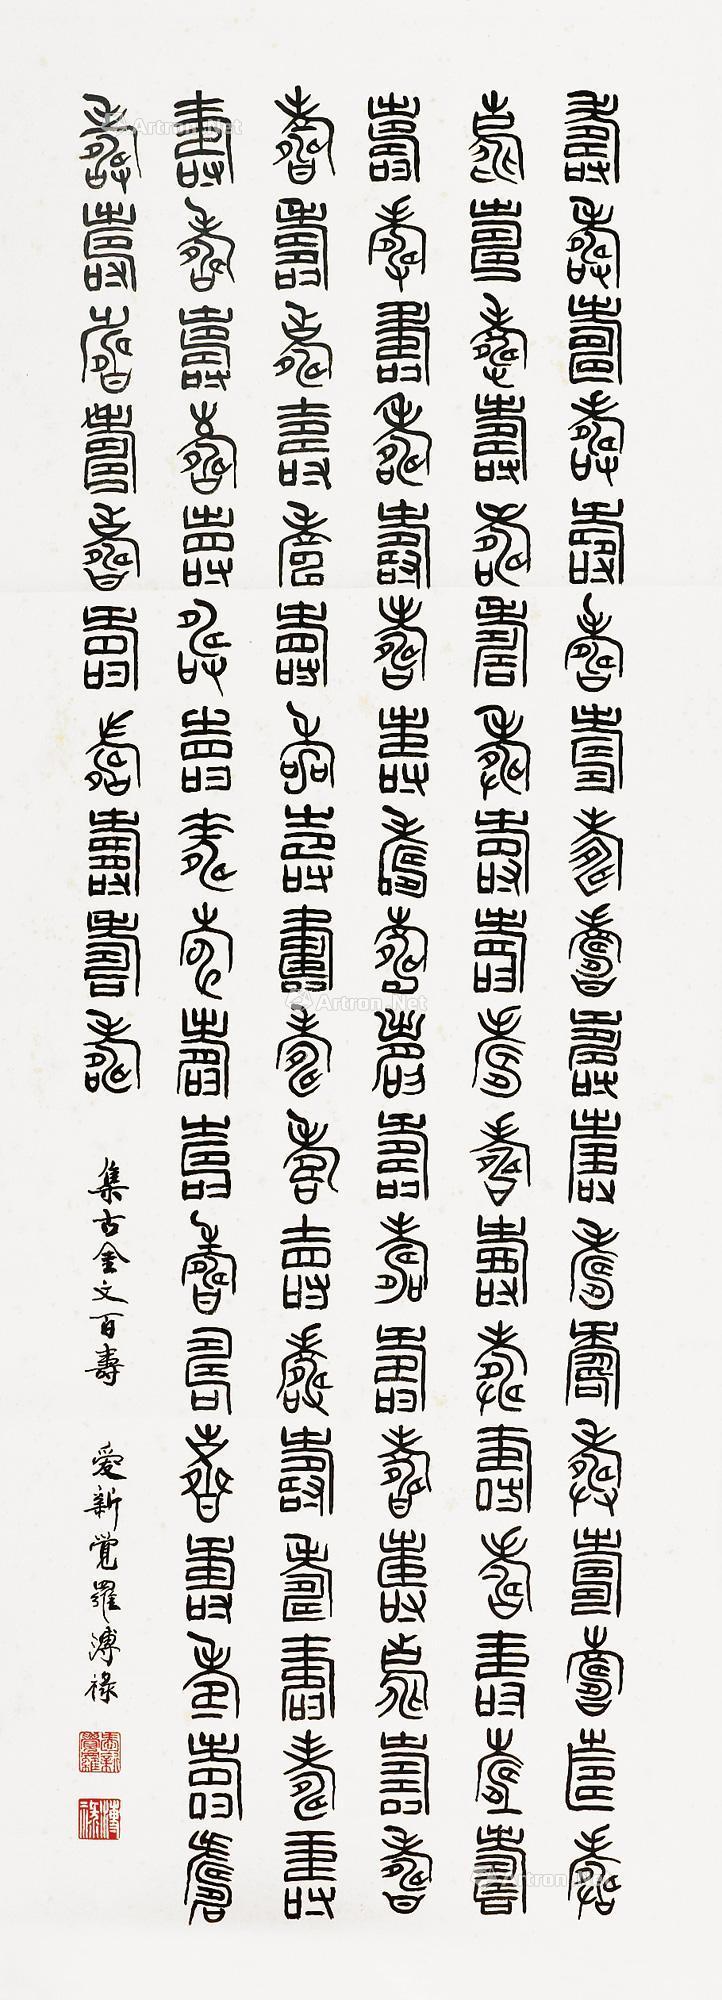 壽壽壽壽壽壽壽壽壽壽壽壽壽壽壽壽壽壽
壽壽壽壽壽壽壽壽壽壽壽壽壽壽壽壽壽壽
壽壽壽壽壽壽壽壽壽壽壽壽壽壽壽壽壽壽
壽壽壽壽壽壽壽壽壽壽壽壽壽壽壽壽壽壽
壽壽壽壽壽壽壽壽壽壽壽壽壽壽壽壽壽壽
壽壽壽壽壽壽壽壽壽壽 集古金文百壽 愛新覺羅溥祿
愛新覺羅
溥祿
Artron.Net
Artron.Net
Artron.Net